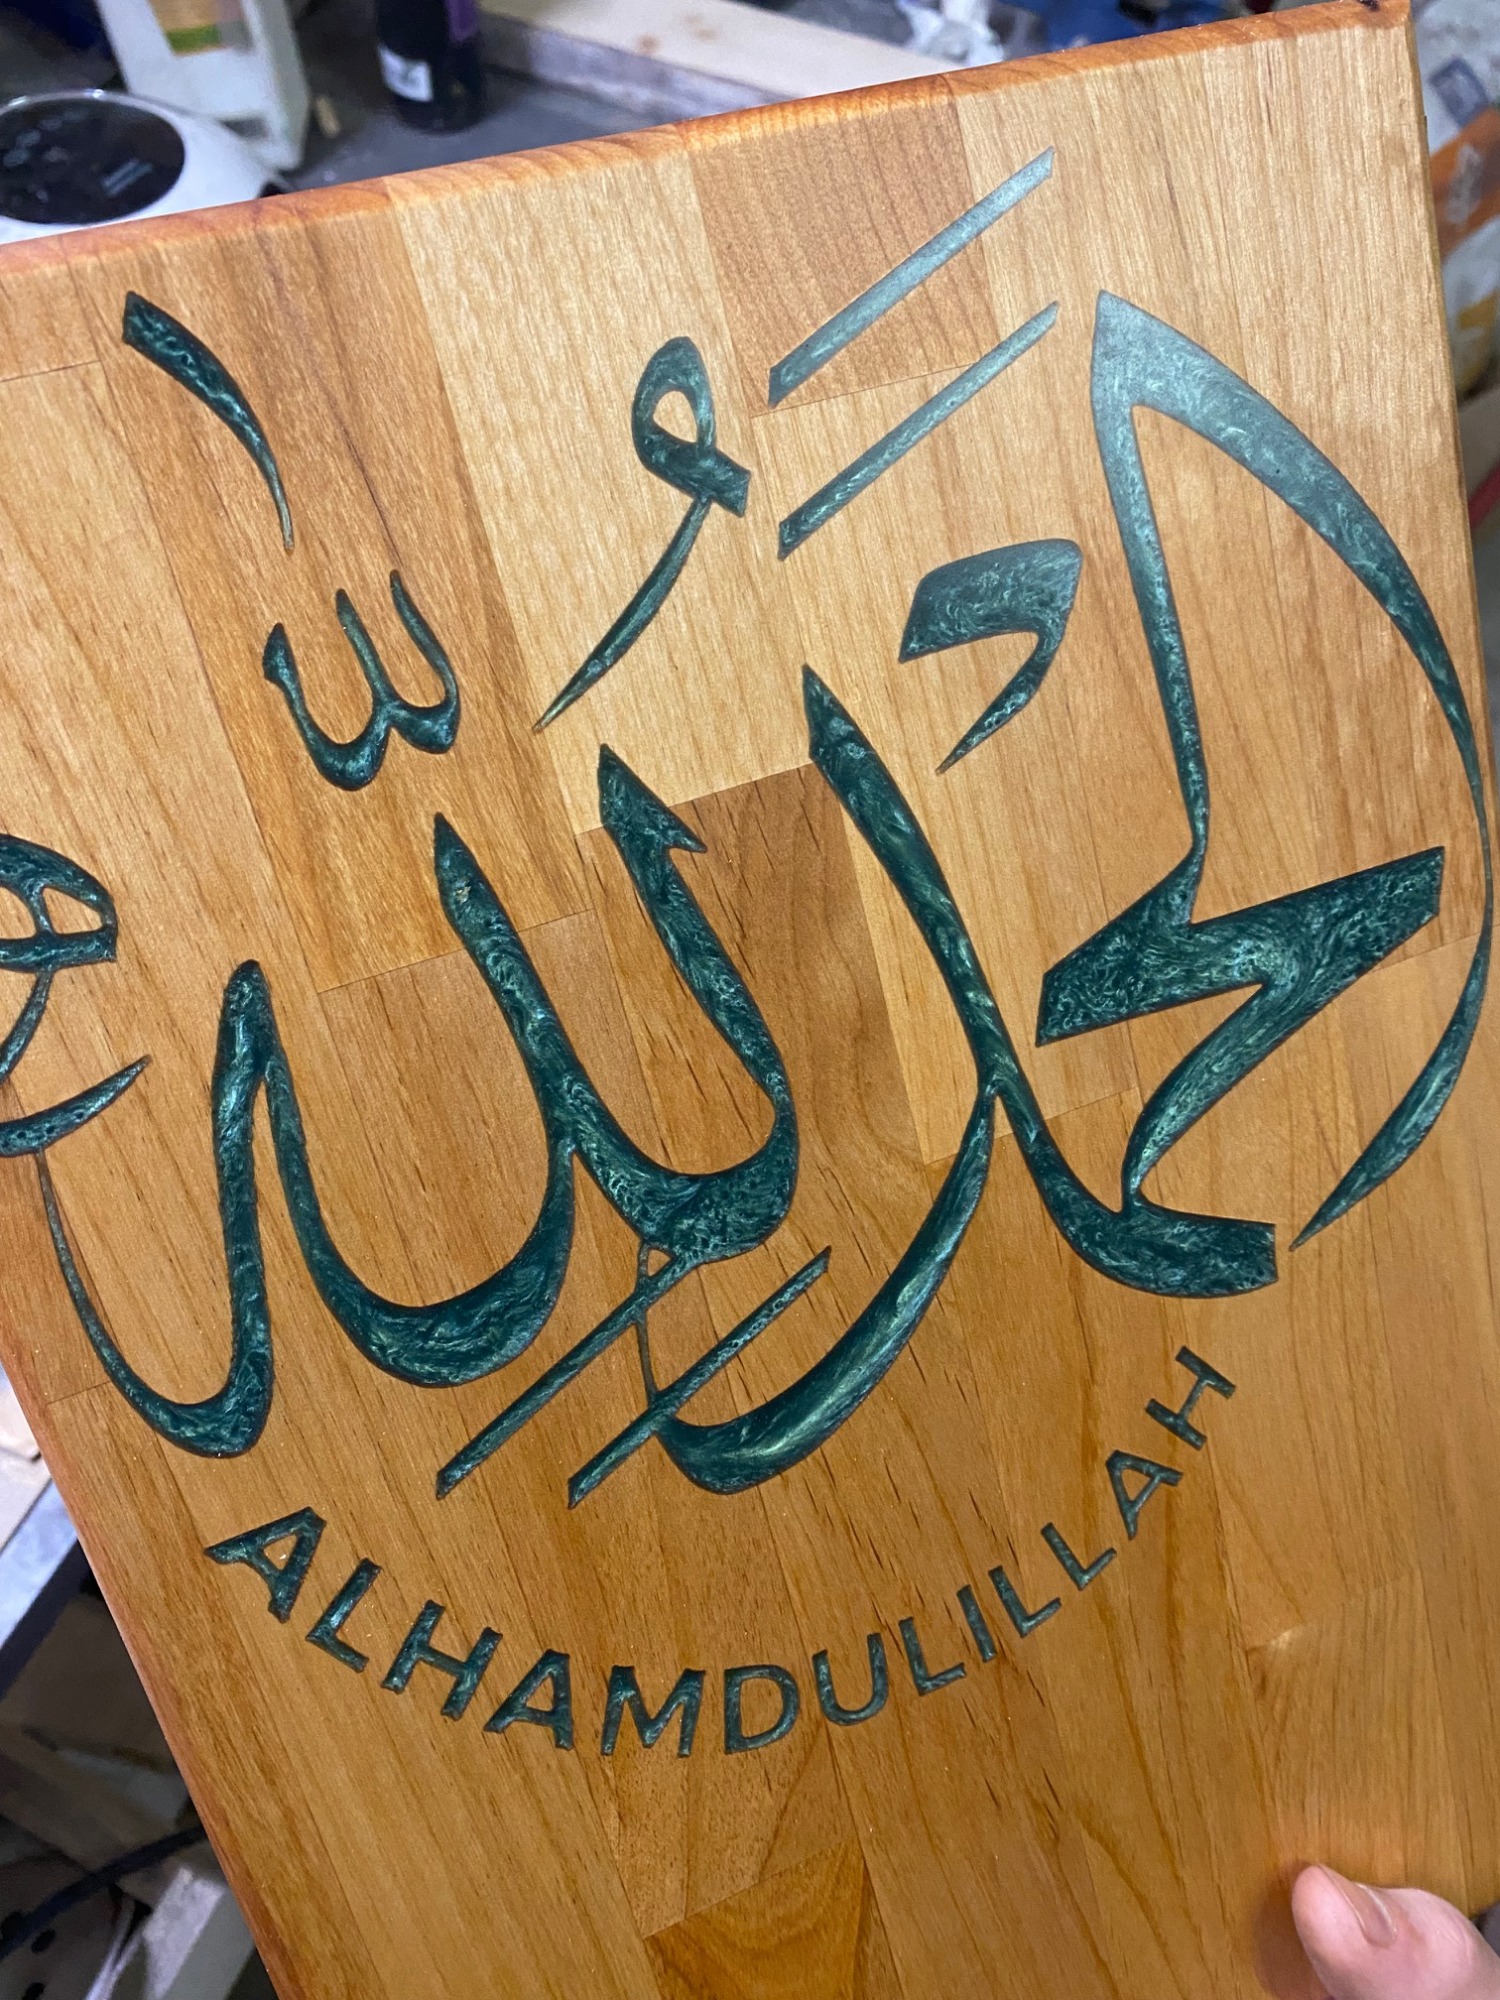 الحمدُ لله
ALHAMDULILLAH